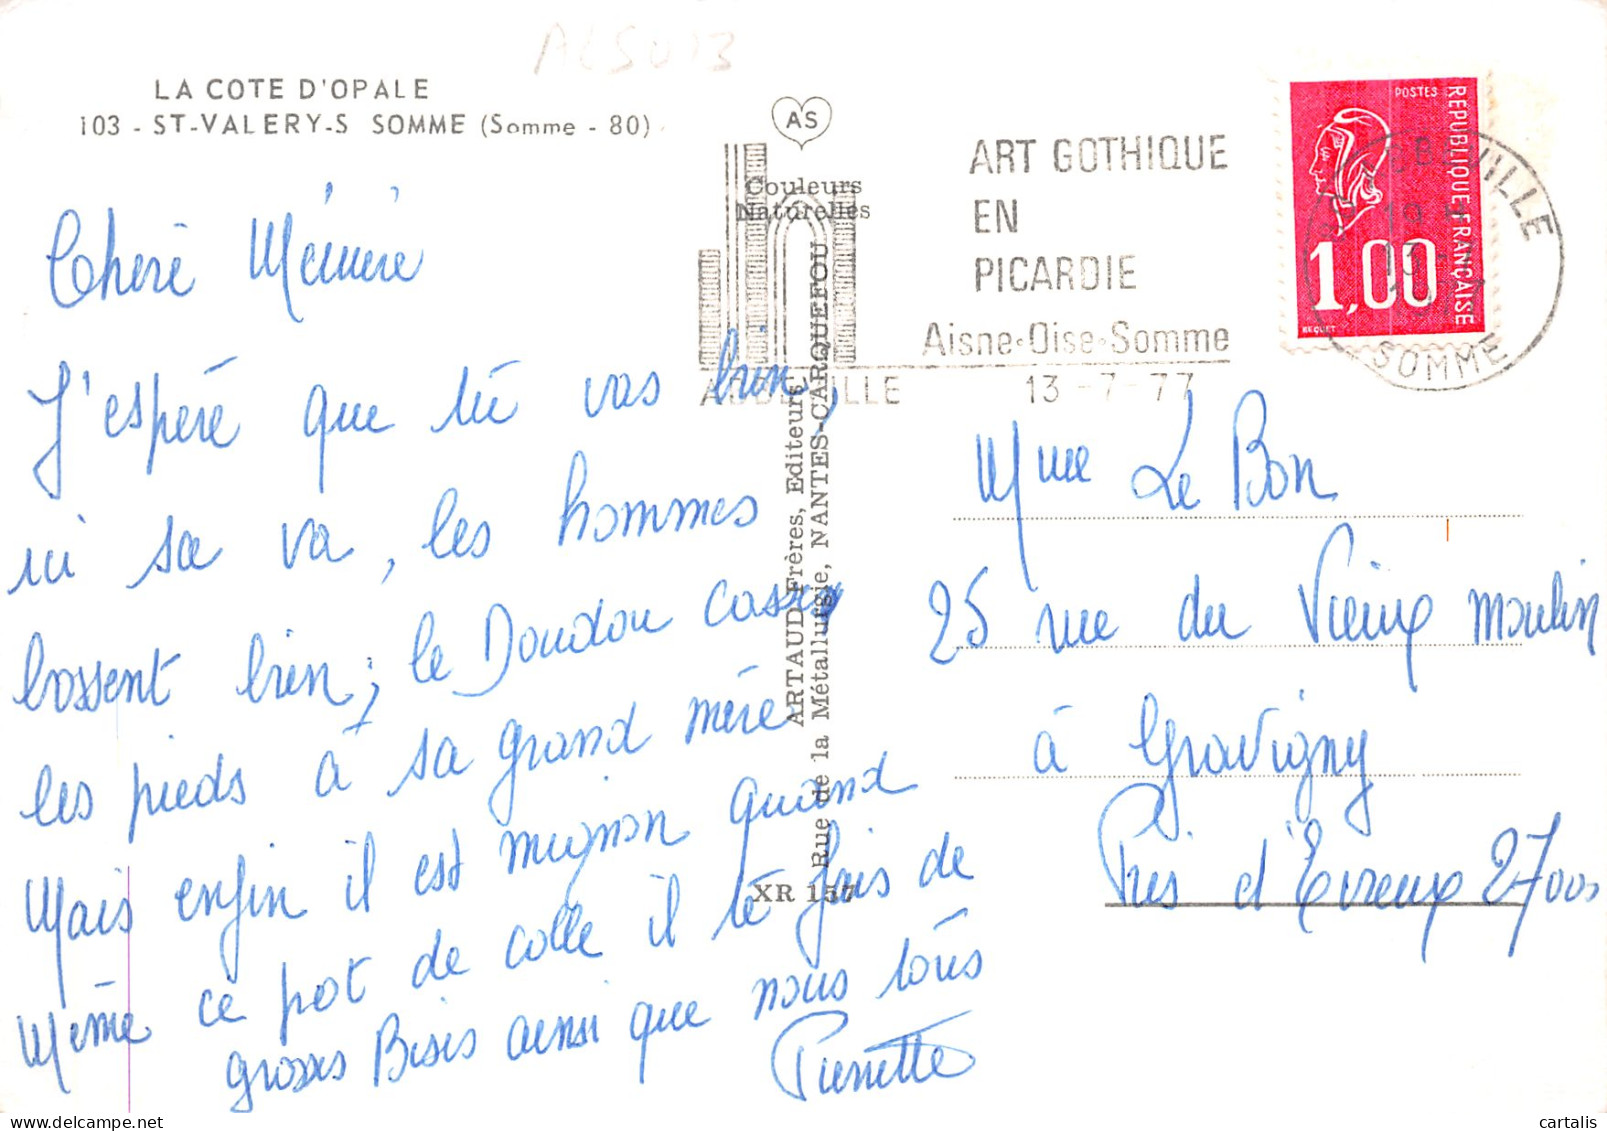 ALSU13
LA COTE D'OPALE
103 - ST-VALERY-S SOMME (Somme - 80)
AS
Couleurs
Naturelles
ARTAUD Frères, Editeurs
Rue de la Métallurgie, NANTES-CARQUEFOU
XR 157
ART GOTHIQUE
EN
PICARDIE
Aisne-Oise-Somme
ABBEVILLE
13-7-77
POSTES
REPUBLIQUE FRANÇAISE
1,00
BEQUET
19 H
13-7
SOMME
Cheré Mémère
J'espéré que tu vas bien,
ici sa va, les hommes
bossent bien, le Doudou casse
les pieds à sa grand mère
Mais enfin il est mignon quand
Même ce pot de colle il te fais de
grosses Bises ainsi que nous tous
Pierrette
Mme Le Bon
25 rue du Vieux moulin
à Gravigny
Près d'Evreux 27000
cartalis